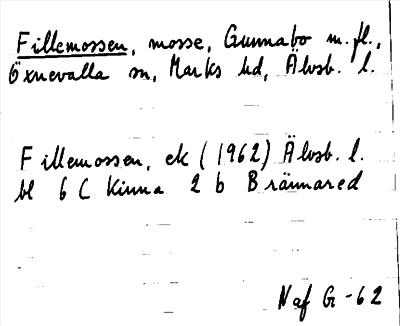 Fillemossen, mosse, Gunnabo m.fl.,
Öxnevalla sn, Marks hd, Älvsb. l.
Fillemossen, ek (1962) Älvsb. l.
bl 6 C Kinna 2 b Brännared
Naf G -62